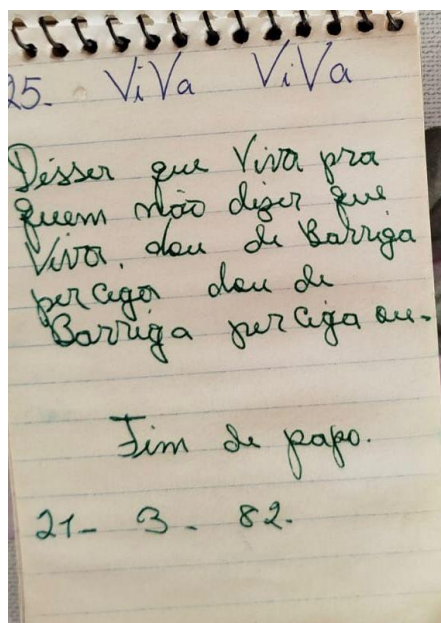 25. ViVa ViVa
Désser que Viva pra
quem não dizer que
Viva, dou de Barriga
per ciga dou de
Barriga per ciga ou-
Fim de papo.
21- 3- 82.